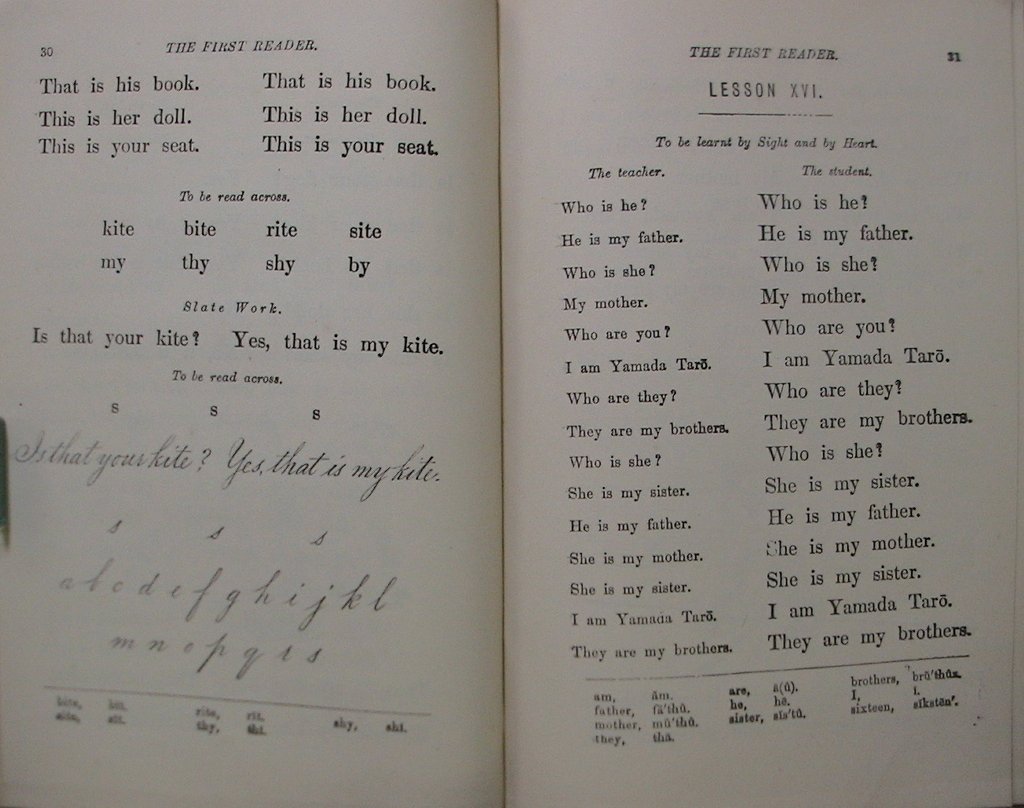 30 THE FIRST READER.
That is his book. That is his book.
This is her doll. This is her doll.
This is your seat. This is your seat.
To be read across.
kite bite rite site
my thy shy by
Slate Work.
Is that your kite? Yes, that is my kite.
To be read across.
s s s
Is that your kite? Yes, that is my kite.
s s s
a b c d e f g h i j k l
m n o p q r s
rite, rīt. shy, shī.
thy, thī.
THE FIRST READER. 31
LESSON XVI.
To be learnt by Sight and by Heart.
The teacher. The student.
Who is he? Who is he?
He is my father. He is my father.
Who is she? Who is she?
My mother. My mother.
Who are you? Who are you?
I am Yamada Tarō. I am Yamada Tarō.
Who are they? Who are they?
They are my brothers. They are my brothers.
Who is she? Who is she?
She is my sister. She is my sister.
He is my father. He is my father.
She is my mother. She is my mother.
She is my sister. She is my sister.
I am Yamada Tarō. I am Yamada Tarō.
They are my brothers. They are my brothers.
am, are, brothers,
father, he, hē. I, ī.
mother, sister, sixteen,
they,